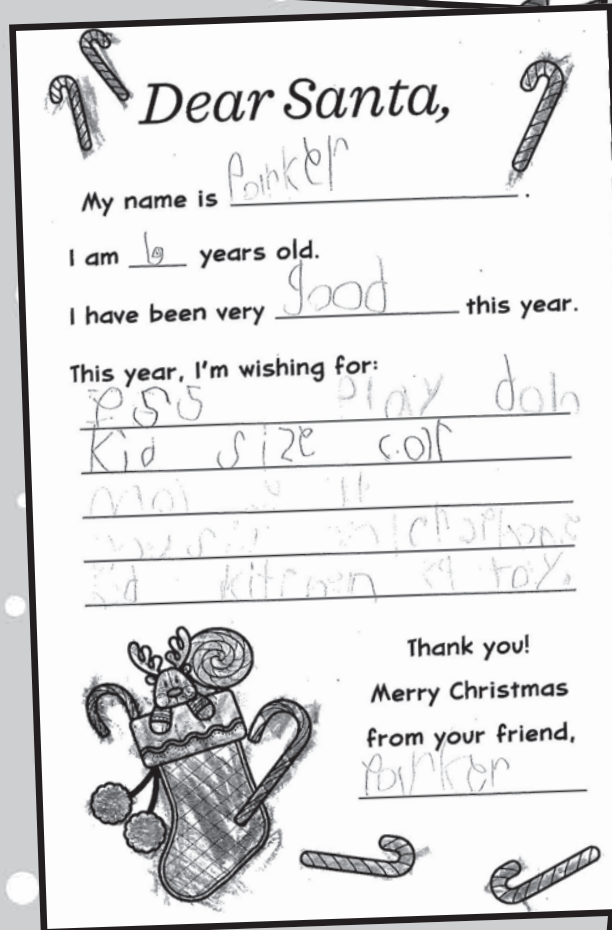 Dear Santa,
My name is Parker.
I am 6 years old.
I have been very good this year.
This year, I'm wishing for:
PS5 Play doh
Kid size
kitchen toy.
Thank you!
Merry Christmas
from your friend,
Parker